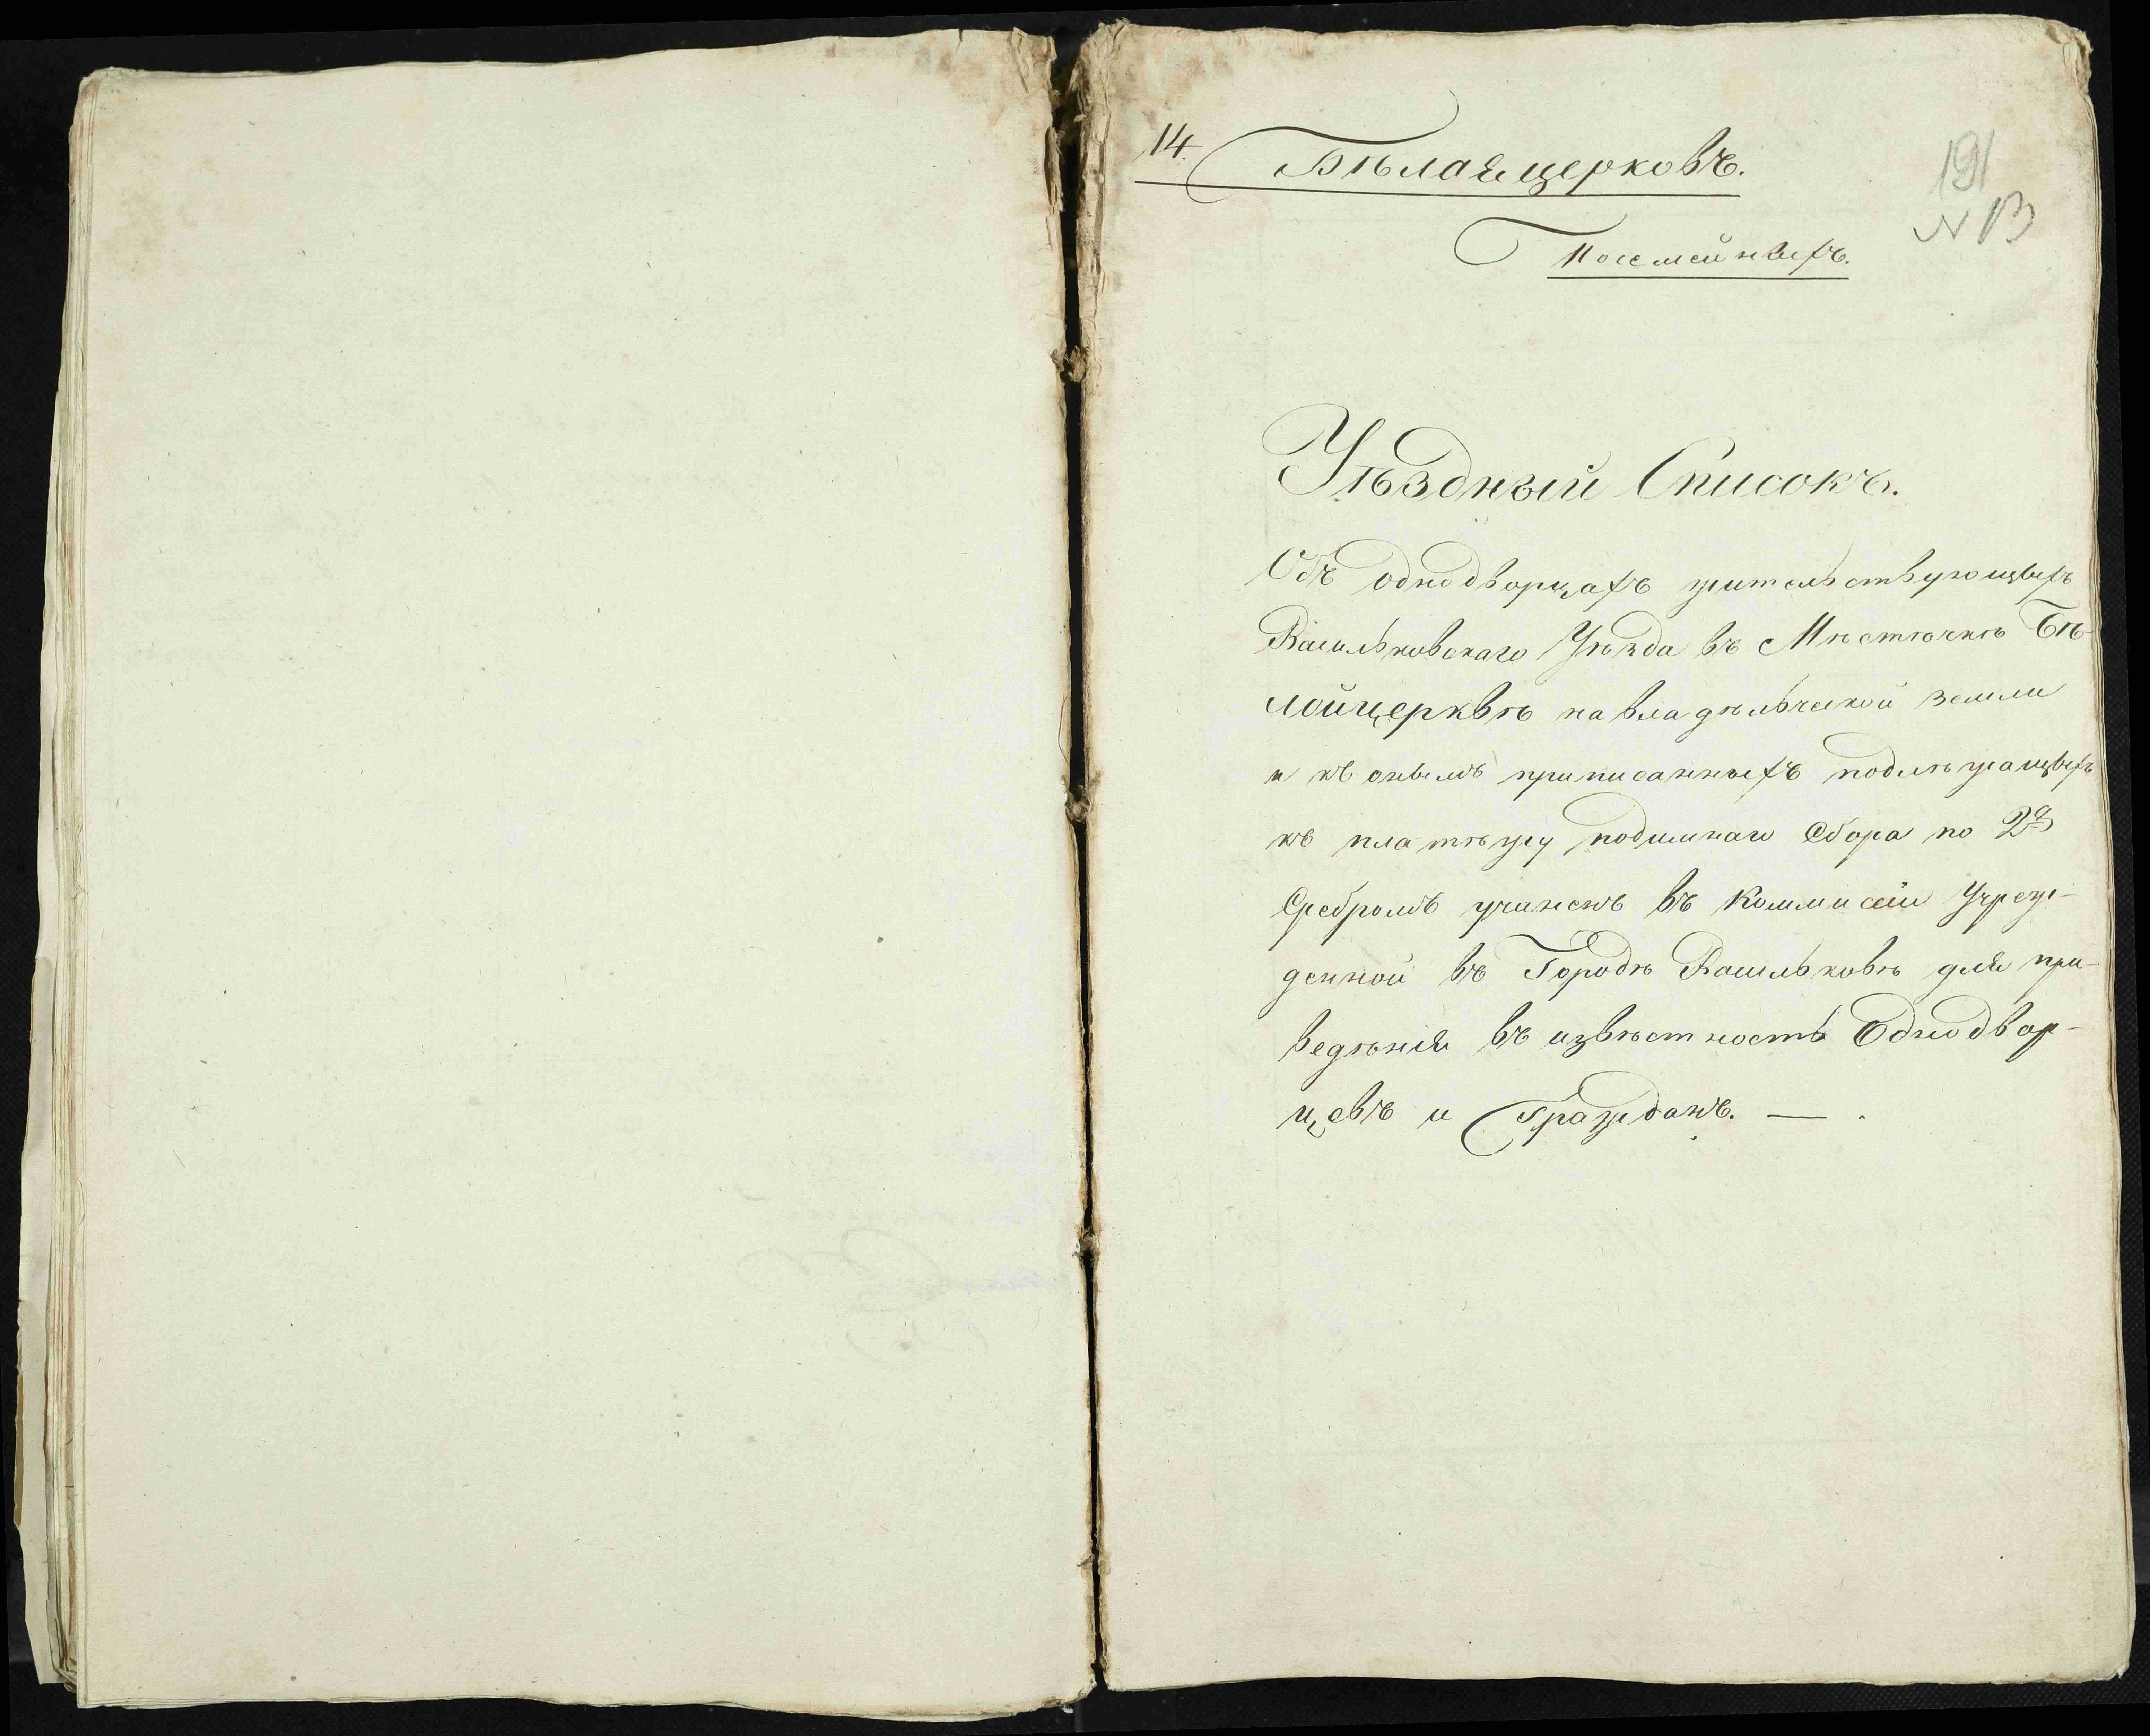 14. Бѣлаяцерковъ.
191
N 13
Посемейныхъ.
Уѣздный Списокъ.
Объ однодворцахъ жительствующихъ
Васильковскаго Уѣзда въ Мѣстѣчкѣ Бѣ-
лойцерквѣ на владѣльческой земли
и къ онымъ приписанныхъ подлѣжащихъ
къ платѣжу подымнаго сбора по 2р
Сребромъ учиненъ въ Коммисеіи Учреж-
денной въ Городѣ Васильковѣ для при-
ведѣнія въ извѣстность Однодвор-
цевъ и Гражданъ. —